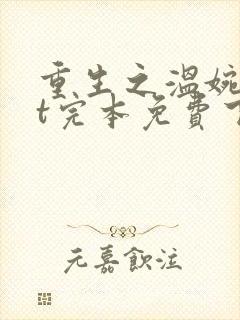 重生之温婉
t完本免費下
元嘉飲注